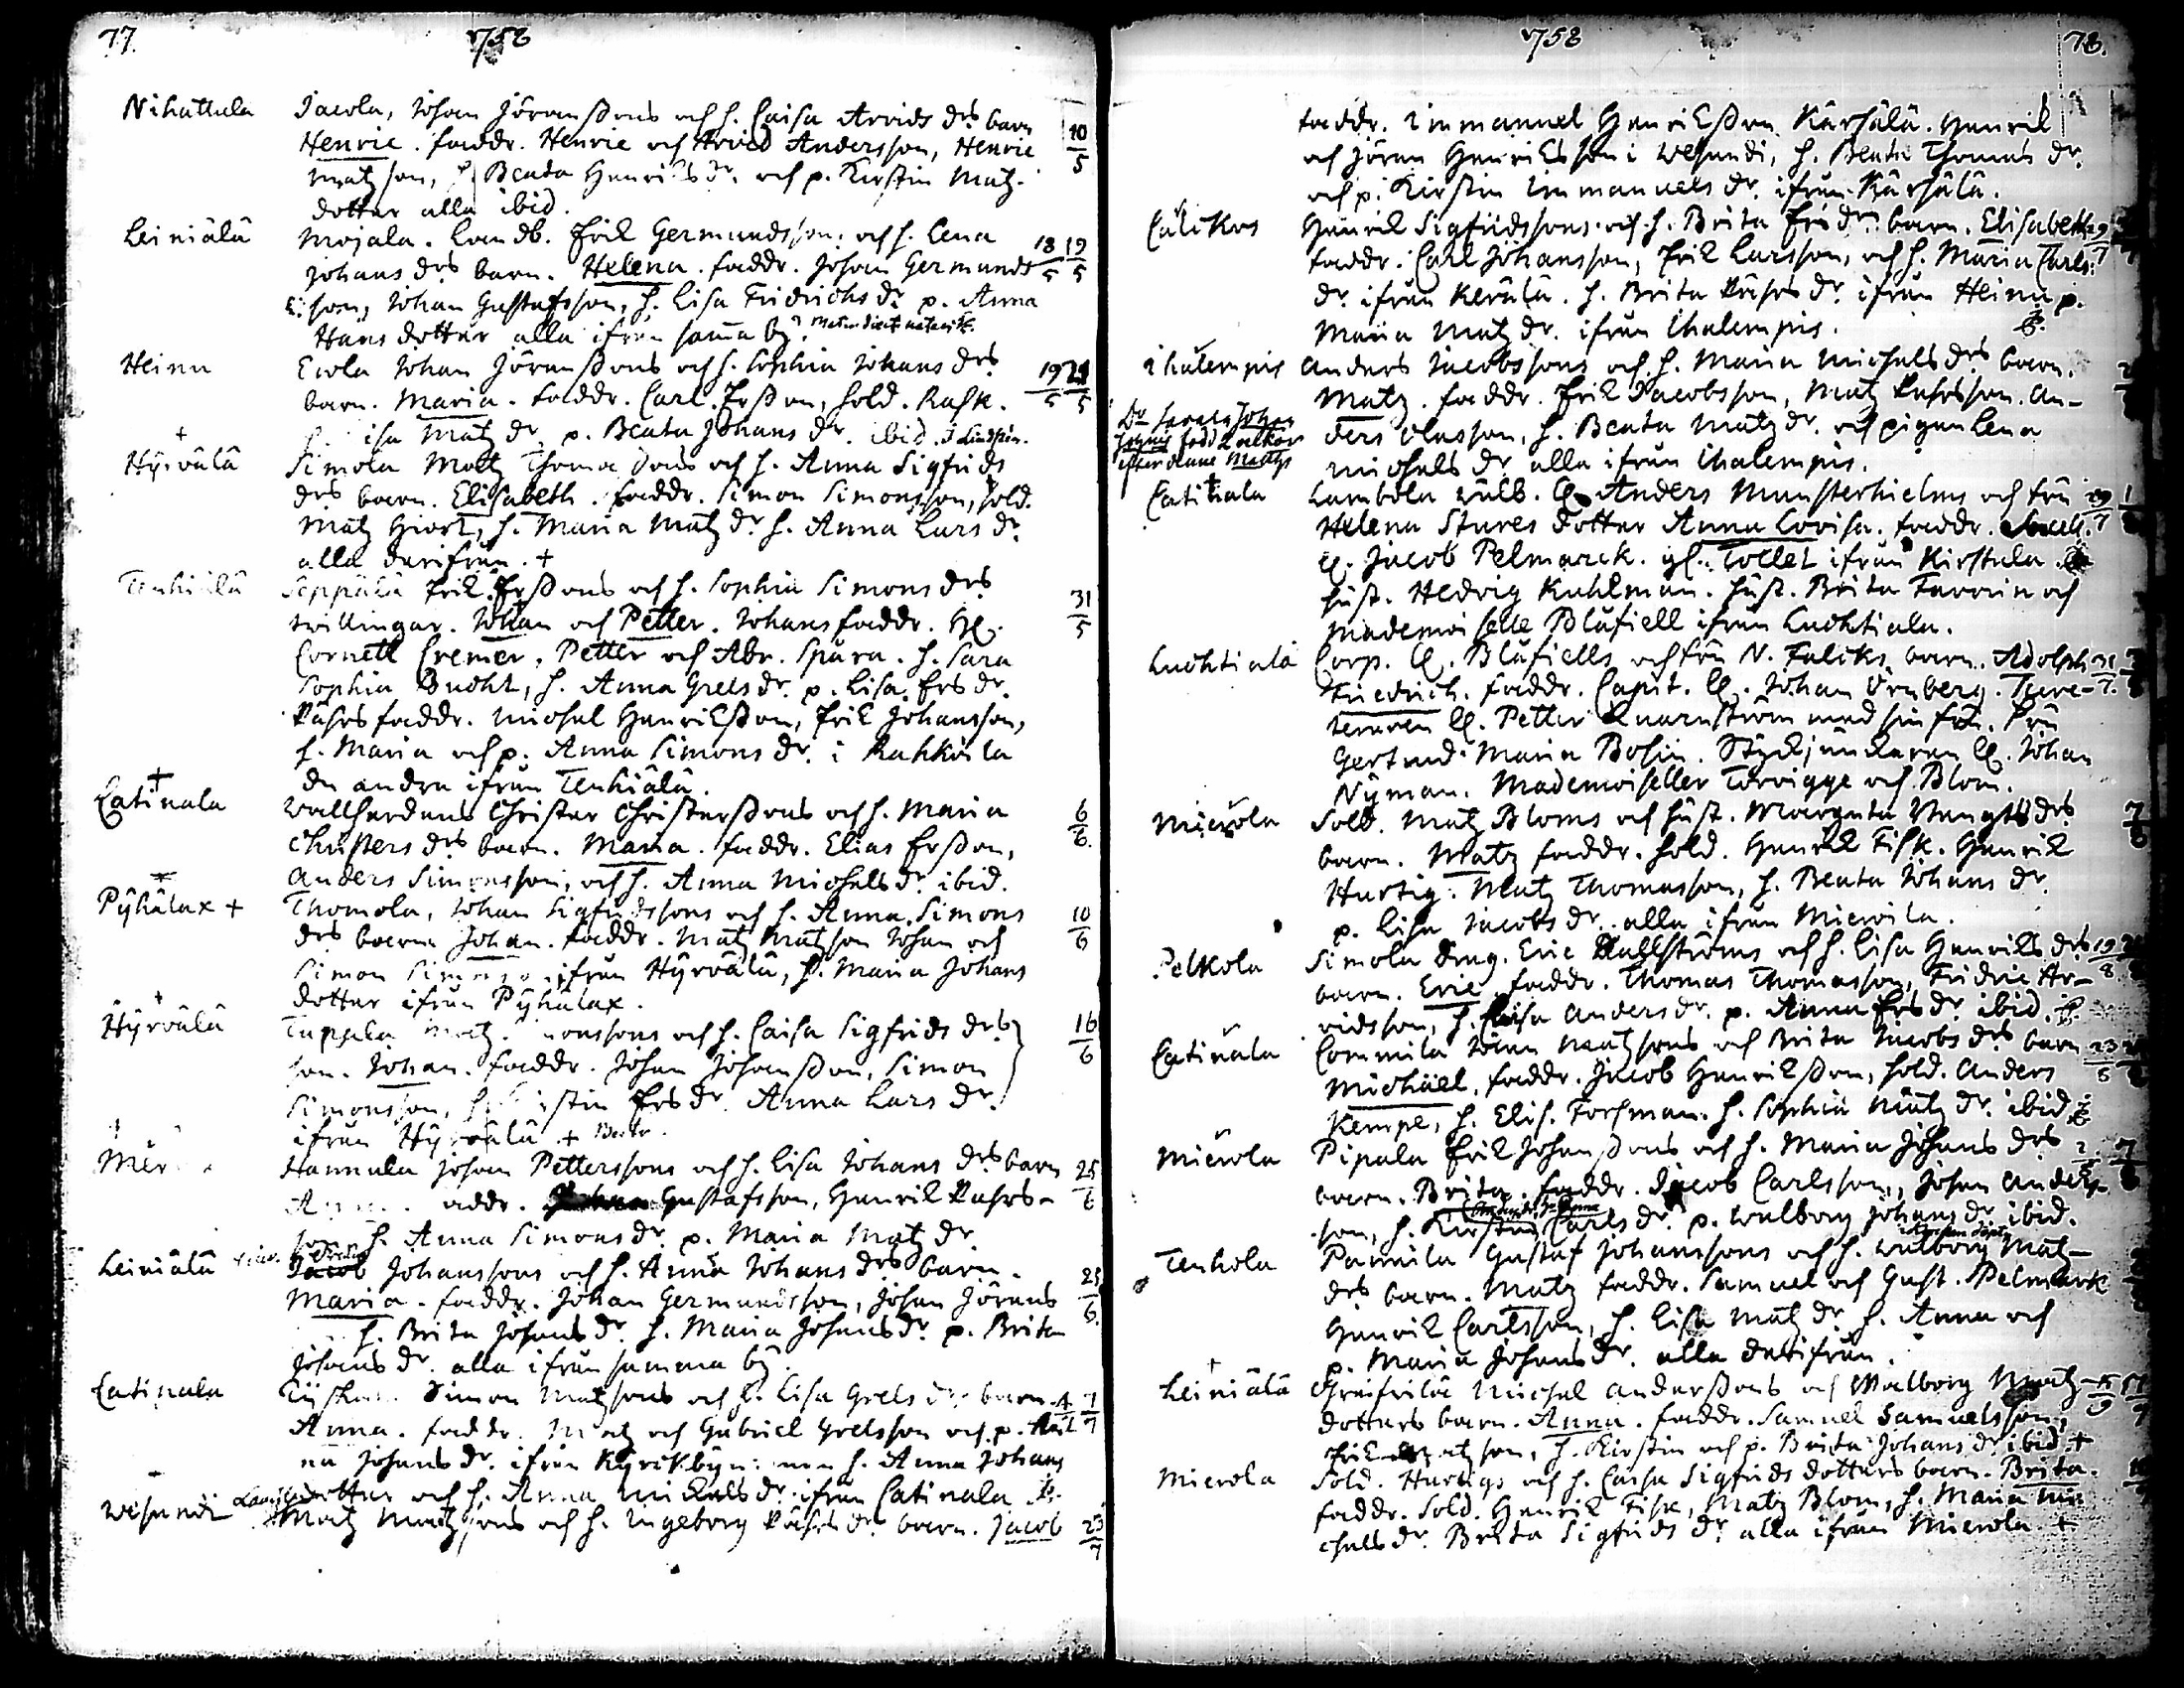 77. 1758
Nihattula Jacola, Johan Jöranssons och h. Caisa Arvids drs barn 10/5
Henric. faddr. Henric och Arvid Andersson, Henric
Matzson, h. Beata Henriks dr. och p. Kirstin Matz-
dotter alla ibid.
Leiniälä Mojala. Landb. Erik Germundsson. och h. Lena 18/5 19/5
Johans drs barn. Helena. faddr. Johan Germunds
son, Johan Gustafsson, h. Lisa Fridrichs dr. p. Anna
Hans dotter alla ifrån sama by.
Heinu Eerola Johan Jöranssons och h. Sophia Johans drs 19/5 21/5
barn. Maria. faddr. Carl Ersson, sold. Rask.
h. Lisa Matz dr. p. Beata Johans dr. ibid.
Hyrvälä Simola Matz Thomassons och h. Anna Sigfrids
drs barn. Elisabeth. faddr. Simon Simonsson, sold.
Matz Hiort, h. Maria Matz dr. h. Anna Lars dr.
alla derifrån. +
Tenhiälä Seppälä Erik Erssons och h. Sophia Simons drs
twillingar. Johan och Petter. Johans faddr. H. 31/5
Cornett Cremer. Petter och Abr. Spåra. h. Sara
Sophia Bucht, h. Anna Grels dr. p. Lisa Ers dr.
Påhrs faddr. Michel Henriksson, Erik Johansson,
h. Maria och p. Anna Simons dr. i Rahkoila
de andra ifrån Tenhiälä.
Catinala Wallherdens Christer Christerssons och h. Maria 6/6
Christers drs barn. Maria. faddr. Elias Ersson,
Anders Simonsson, och h. Anna Michels dr. ibid.
Pyhälax + Thomola, Johan Sigfridssons och h. Anna Simons 10/6
drs barn Johan. faddr. Matz Matzson Johan och
Simon Simonsso ifrån Hyrvälä, h. Maria Johans
dotter ifrån Pyhälax.
Hyrvälä Tuppala Matz Simonssons och h. Caisa Sigfrids drs 16/6
son. Johan. faddr. Johan Johansson, Simon
Simonsson, h. Kirstin Ers dr. Anna Lars dr.
ifrån Hyrvälä +
Mer Hannula Johan Petterssons och h. Lisa Johans drs barn 25/6
faddr. Gustafsson, Henrik Påhrs-
son h. Anna Simons dr. p. Maria Matz dr.
Leiniälä Jacob Johanssons och h. Anna Johans drs barn. 25/6
Maria. faddr. Johan Germundsson, Johan Jörans
h. Brita Johans dr. h. Maria Johans dr. p. Brita
Johans dr. alla ifrån samma by.
Catinala Simon Matzsons och h. Lisa Grels drs barn 7/7
Anna. faddr. Matz och Gabriel Grelsson och p. An-
na Johans dr. ifrån Kyrckbyn. h. Anna Johans
dotter och h. Anna Michels dr. ifrån Catinala
Wesundi Matz Matzsons och h. Ingeborg Påhrs dr. barn. Jacob 23/7
1758 78.
faddr. Immanuel Henriksson Kärsälä. Henrik
och Jöran Henriksson i Wesundi, h. Beata Thomas dr.
och p. Kirstin Immanuels dr. ifrån Kärsälä.
Henrik Sigfridssons och h. Brita Ers drs barn. Elisabeth 29/7
faddr. Carl Johansson, Erik Larsson, och h. Maria Carls
dr. ifrån Kerälä. h. Brita Påhrs dr. ifrån Heinu p.
Maria Matz dr. ifrån Ihalempis.
Ihalempis Anders Jacobssons och h. Maria Michels drs barn.
Matz. faddr. Erik Jacobsson, Matz Påhrsson. An-
ders Olasson, h. Beata Matz dr. och pigan Lena
Michels dr. alla ifrån Ihalempis.
Catinala Lambola Anders Munsterhielms och fru 29/7
Helena Stures dotter Anna Lovisa. faddr.
H. Jacob Pelmarck. Tollet ifrån Kirstula.
hust. Hedvig Kuhlman. hust. Brita Favorin och
Mademoiselle Blåfiell ifrån Luchtiala.
Luchtiala Corp. H. Blåfiells och fru N. Falcks barn. Adolph 31/7
Friedrich. faddr. Capit. H. Johan Örnberg.
H. Petter Quarnström med sin fru. Fru
Gertrud Maria Bosin. Styckjunkaren H. Johan
Nyman. Mademoiseller Torvigge och Blom.
Mierola Sold. Matz Bloms och hust. Margeta Bengts drs
barn. Matz faddr. sold. Henrik Fisk. Henrik
Hurtig. Matz Thomasson, h. Beata Johans dr.
p. Lisa Jacobs dr. alla ifrån Mierola.
Pelkola Simola Drag. Eric Hallströms och h. Lisa Henriks drs 19/8
barn. Eric faddr. Thomas Thomasson, Fridric Ar-
vidsson, h. Caisa Anders dr. p. Anna Ers dr. ibid.
Catinala Commila Johan Matzsons och Brita Jacobs drs barn
Michäel. faddr. Jacob Henriksson, sold. Anders
Kempe, h. Elis. Forsman. h. Sophia Matz dr. ibid
Mierola Pipala Erik Johanssons och h. Maria Johans drs
barn. Brita. faddr. Jacob Carlsson, Johan Anders-
son, h. Kirstin Carls dr. p. Walborg Johans dr. ibid.
Tenhola Gustaf Johanssons och h. Walborg Matz-
drs barn. Matz faddr. Samuel och Gust. Pelmark
Henrik Carlsson, h. Lisa Matz dr. h. Anna och
p. Maria Johans dr. alla derifrån.
Leiniälä Michel Anderssons och Walborg Matz-
dotters barn. Anna. faddr. Samuel Samuelsson,
Erik Matzson, h. Kirstin och p. Brita Johans dr. ibid. +
Mierola Sold. Hurtigs och h. Caisa Sigfrids dotters barn. Brita.
faddr. Sold. Henrik Fisk, Matz Blom, h. Maria Mi-
chels dr. Brita Sigfrids dr. alla ifrån Mierola. +